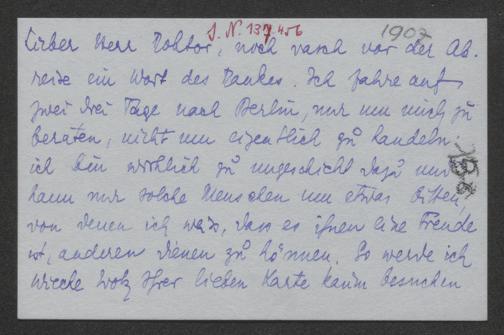 J. N. 137.456
1907
158
Lieber Herr Doktor, noch rasch vor der Ab-
reise ein Wort des Dankes. Ich fahre auf
zwei drei Tage nach Berlin, nur um mich zu
beraten, nicht um eigentlich zu handeln.
ich bin wirklich zu ungeschickt dazu und
kann nur solche Menschen um etwas bitten,
von denen ich weiss, dass es ihnen eine Freude
ist, anderen dienen zu können. So werde ich
Wiecke trotz Ihrer lieben Karte kaum besuchen